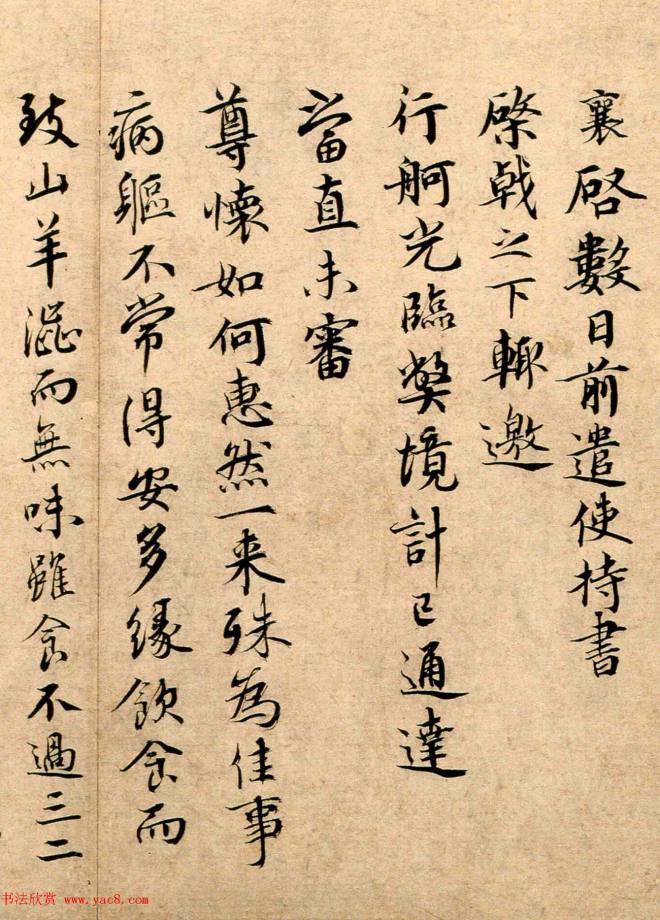 襄啓數日前遣使持書
棨戟之下輙邀
行舸光臨獘境計已通達
當直未審
尊懷如何惠然一来殊為佳事
病軀不常得安多緣飲食而
致山羊澀而無味雖食不過三二
书法欣赏 www.yac8.com